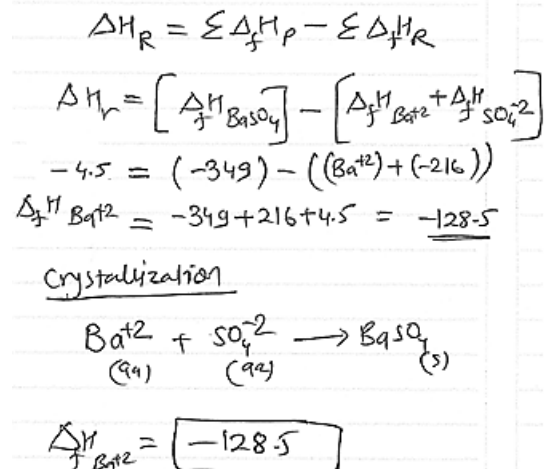 ΔH_R = ΣΔ_fH_P − ΣΔ_fH_R
ΔH_r = [Δ_fH_BaSO₄] − [Δ_fH_Ba⁺² + Δ_fH_SO₄⁻²]
−4.5 = (−349) − ((Ba⁺²) + (−216))
Δ_fH Ba⁺² = −349 + 216 + 4.5 = −128.5
Crystallization
Ba⁺² + SO₄⁻² ⟶ BaSO₄(s)
(aq) (aq)
Δ_fH_Ba⁺² = −128.5